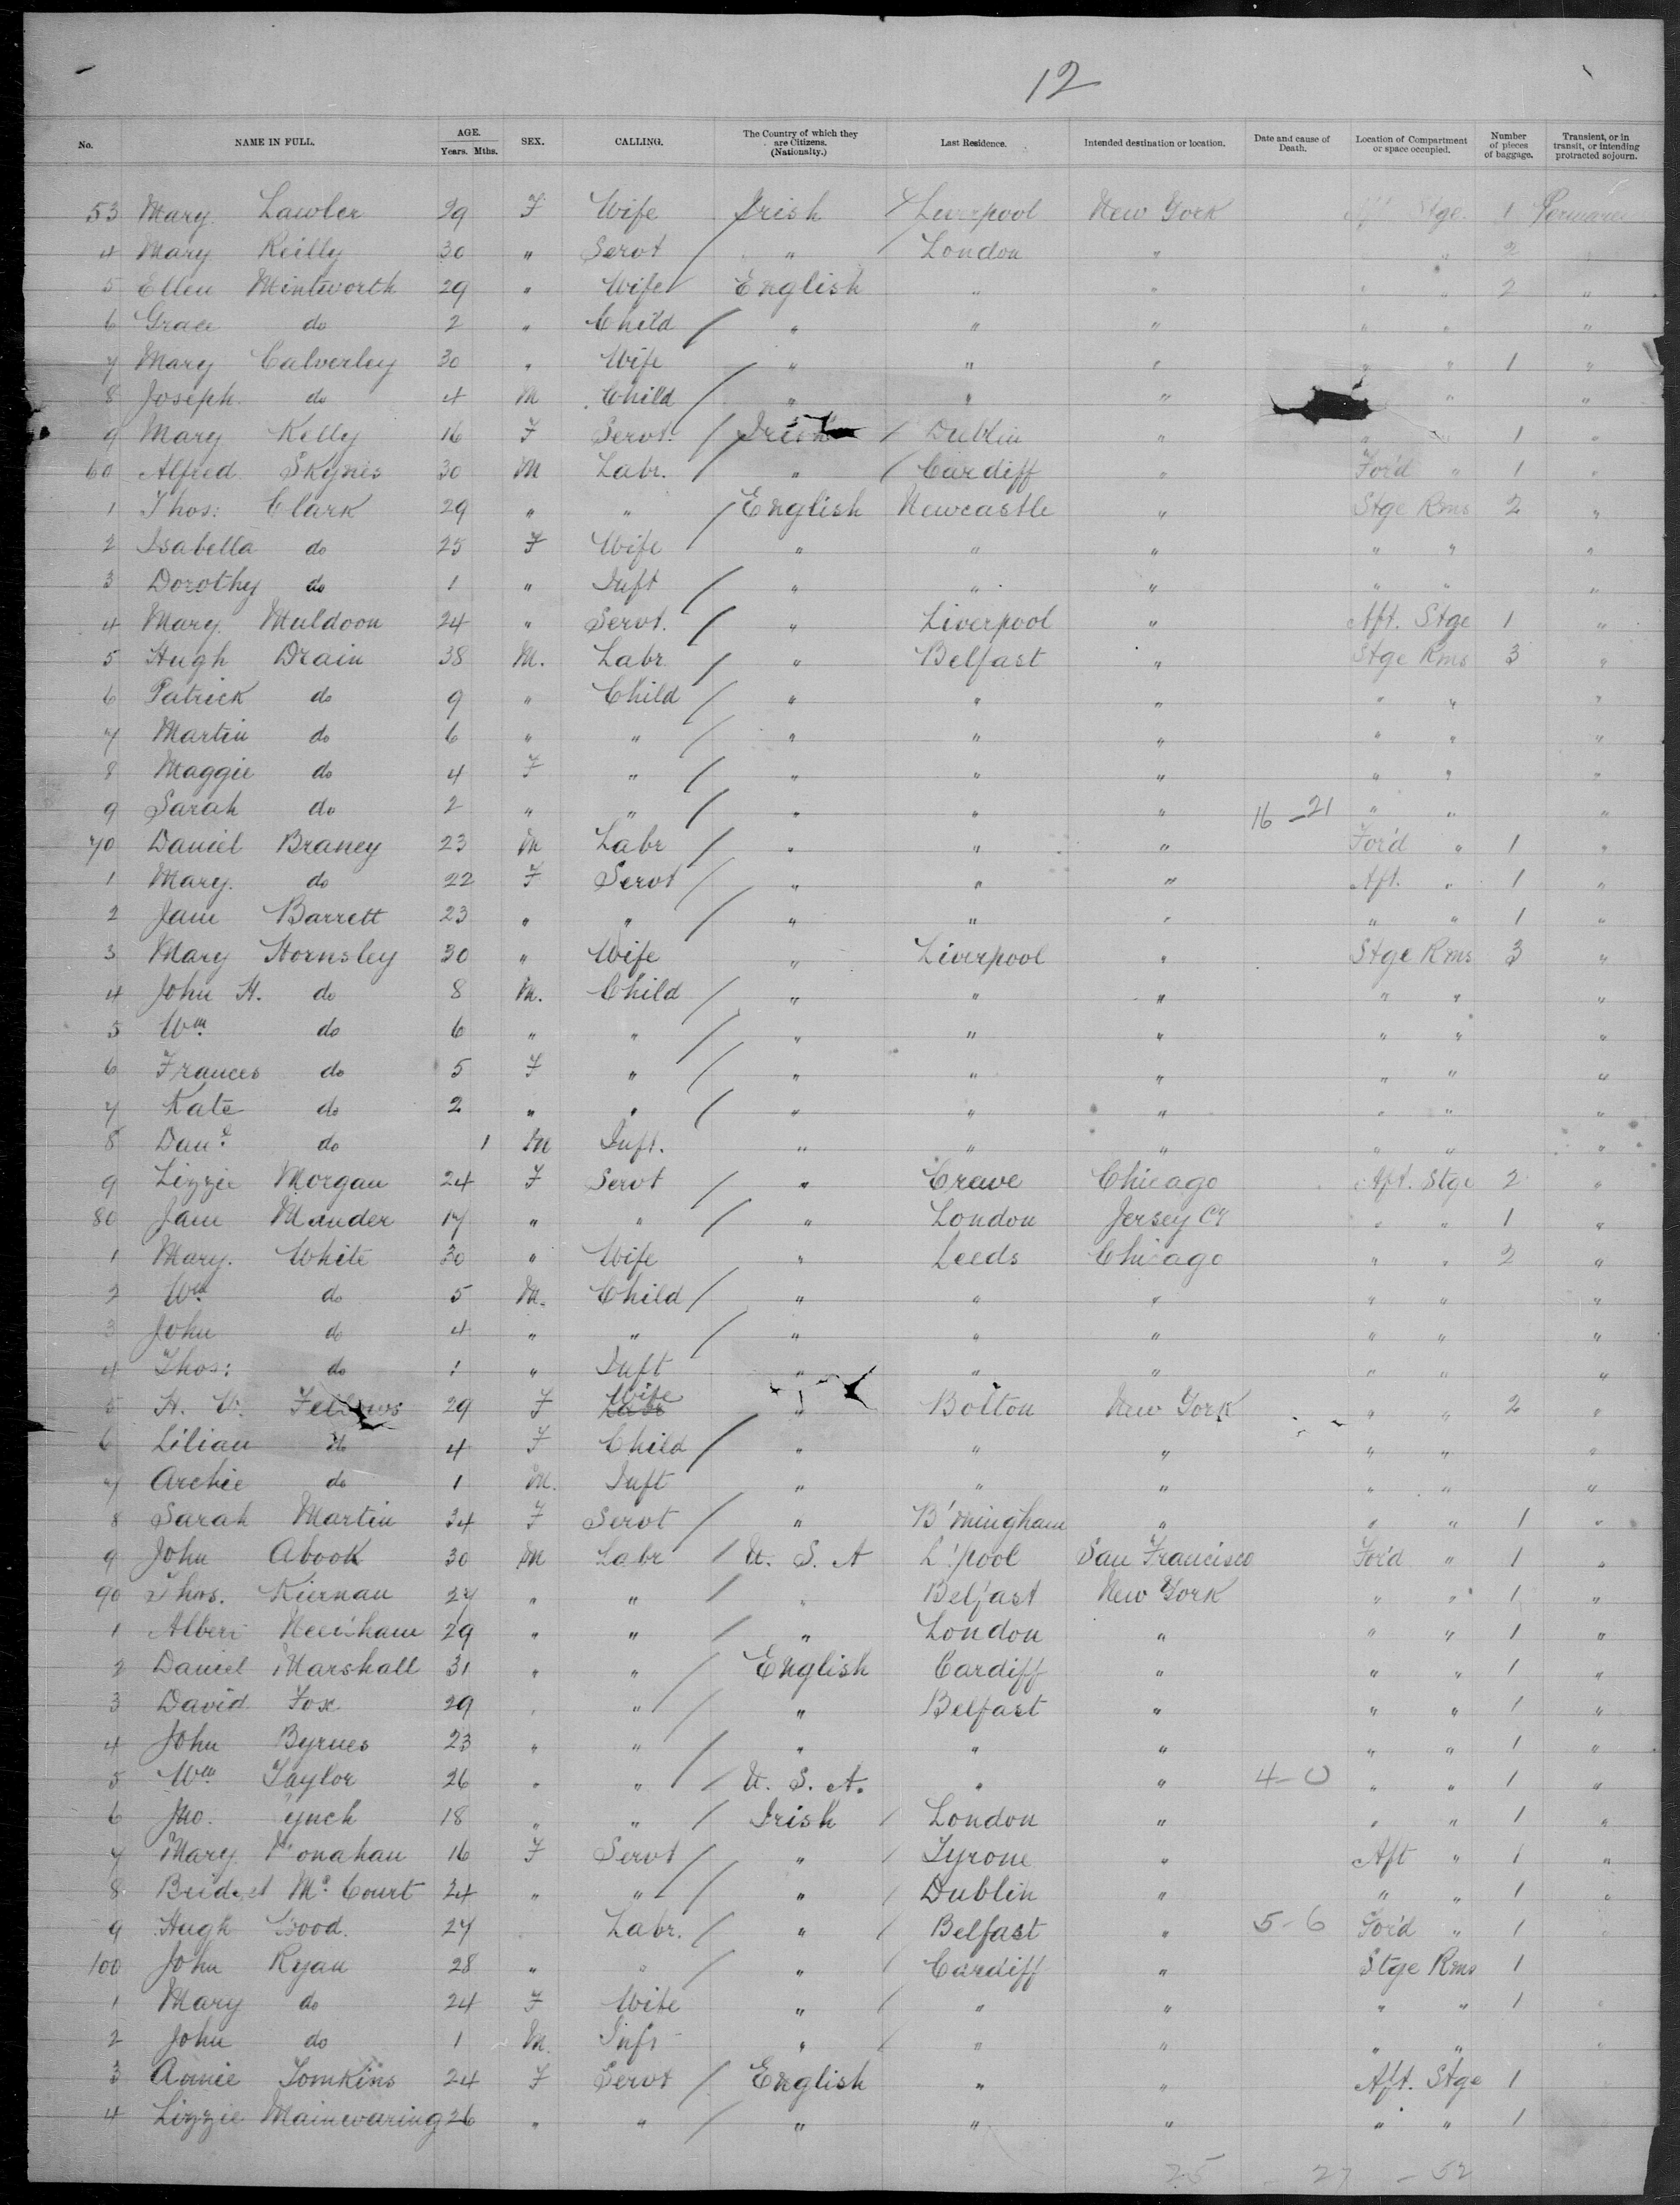 12
No. NAME IN FULL. AGE. Years. Mths. SEX. CALLING. The Country of which they are Citizens. (Nationalty.) Last Residence. Intended destination or location. Date and cause of Death. Location of Compartment or space occupied. Number of pieces of baggage. Transient, or in transit, or intending protracted sojourn.
53 Mary Lawler 29 F Wife Irish Liverpool New York Aft Stge. 1
4 Mary Reilly 30 " Servt / " / London " " 2
5 Ellen Mintworth 29 " Wife English " " " " 2 "
6 Grace do 2 " Child / " " " " " "
7 Mary Calverley 30 " Wife " " " " " 1 "
8 Joseph do 4 M Child / " " " " "
9 Mary Kelly 16 F Servt. / Irish / Dublin " " " 1 "
60 Alfred Skynes 30 M Labr. / " / Cardiff " For'd " 1 "
1 Thos: Clark 29 " " / English Newcastle " Stge Rms 2 "
2 Isabella do 25 F Wife " " " " " "
3 Dorothy do 1 " Inft / " " " " " "
4 Mary Muldoon 24 " Servt. / " Liverpool " Aft. Stge 1 "
5 Hugh Drain 38 M. Labr / " Belfast " Stge Rms 3 "
6 Patrick do 9 " Child / " " " " " "
7 Martin do 6 " " / " " " " " "
8 Maggie do 4 F " / " " " " " "
9 Sarah do 2 " " / " " " 16 - 21 " " "
70 Daniel Braney 23 M Labr / " " " For'd " 1 "
1 Mary. do 22 F Servt / " " " Aft. " 1 "
2 Jane Barrett 23 " " / " " " " " 1 "
3 Mary Hornsley 30 " Wife " Liverpool " Stge Rms 3 "
4 John H. do 8 M. Child / " " " " " "
5 Wm do 6 " " / " " " " " "
6 Frances do 5 F " / " " " " " "
7 Kate do 2 " " / " " " " " "
8 Danl. do 1 M Inft. " " " " " "
9 Lizzie Morgan 24 F Servt / " Crewe Chicago Aft. Stge 2 "
80 Jane Mander 17 " " / " London Jersey Cy " " 1 "
1 Mary. White 30 " Wife " Leeds Chicago " " 2 "
2 Wm do 5 M. Child / " " " " " "
3 John do 4 " " / " " " " " "
4 Thos: do 1 " Inft " " " " " "
5 H. Fellows 29 F Wife Labr " Bolton New York " " 2 "
6 Lilian do 4 F Child / " " " " " "
7 Archie do 1 M. Inft " " " " " "
8 Sarah Martin 34 F Servt / " B'mingham " " " 1 "
9 John Abook 30 M Labr / U. S. A L'pool San Francisco For'd " 1 "
90 Thos. Kiernan 27 " " / " Belfast New York " " 1 "
1 29 " " / " London " " " 1 "
2 Daniel Marshall 31 " " / English Cardiff " " " 1 "
3 David Fox 29 " " / " Belfast " " " 1 "
4 John Byrnes 23 " " / " " " " " 1 "
5 Wm Taylor 26 " " / U. S. A. " " 4-0 " " 1 "
6 Jno. Lynch 18 " " / Irish / London " " " 1 "
7 Mary Monahan 16 F Servt / " / Tyrone " Aft " 1 "
8 Bridget Mc Court 34 " " / " / Dublin " " " 1 "
9 Hugh Wood 27 Labr. / " / Belfast " 5-6 For'd " 1 "
100 John Ryan 28 " " / " / Cardiff " Stge Rms 1
1 Mary do 24 F Wife " / " " " " 1 "
2 John do 1 M. Inft " / " " " " "
3 Annie Tomkins 24 F Servt / English " " Aft. Stge 1
4 Lizzie Mainwaring 26 " " / " " " " " 1
25 - 27 - 52